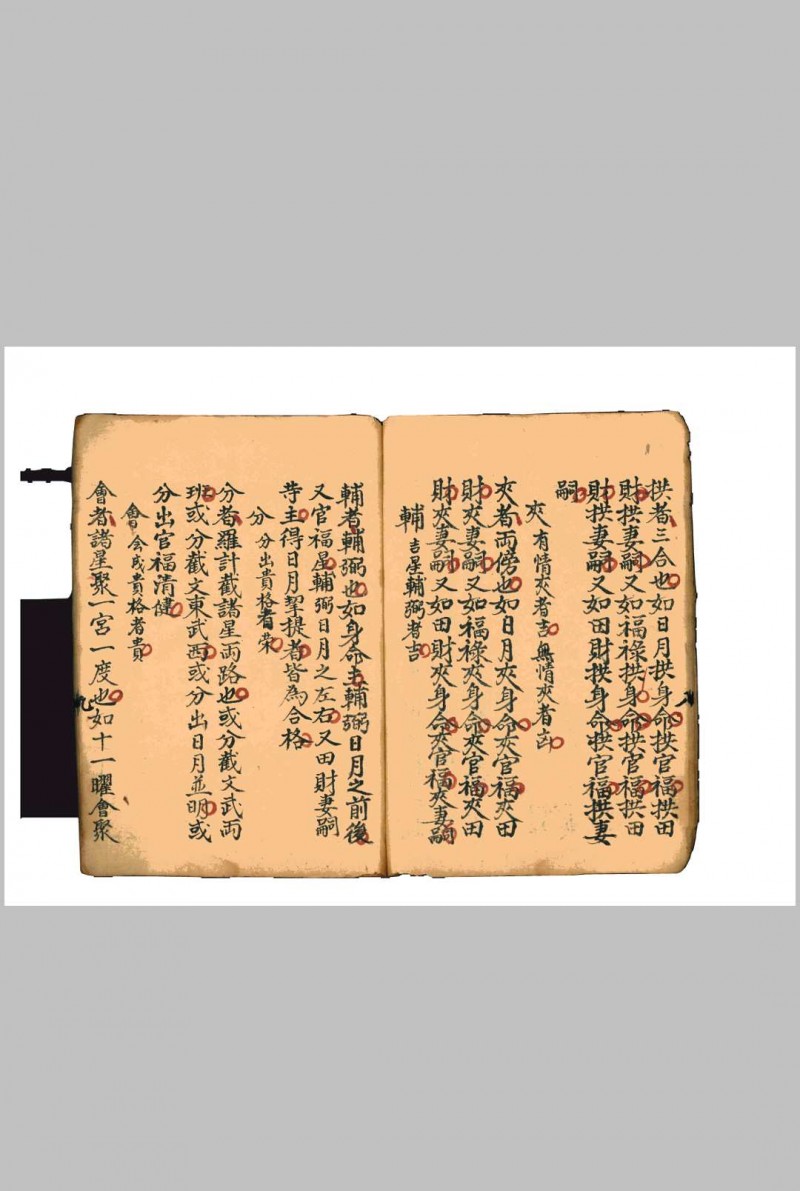 拱者三合也如日月拱身命拱官福拱田
財拱妻嗣又如福祿拱身命拱官福拱田
財拱妻嗣又如田財拱身命拱官福拱妻
嗣
夾 有情夾者吉無情夾者凶
夾者兩傍也如日月夾身命夾官福夾田
財夾妻嗣又如福祿夾身命夾官福夾田
財夾妻嗣又如田財夾身命夾官福夾妻嗣
輔 吉星輔弼者吉
輔者輔弼也如身命主輔弼日月之前後
又官福星輔弼日月之左右又田財妻嗣
等主得日月挈提者皆為合格
分 分出貴格者榮
分者羅計截諸星兩路也或分截文武兩
班或分截文東武西或分出日月並明或
分出官福清健
會 会成貴格者貴
會者諸星聚一宮一度也如十一曜會聚
九